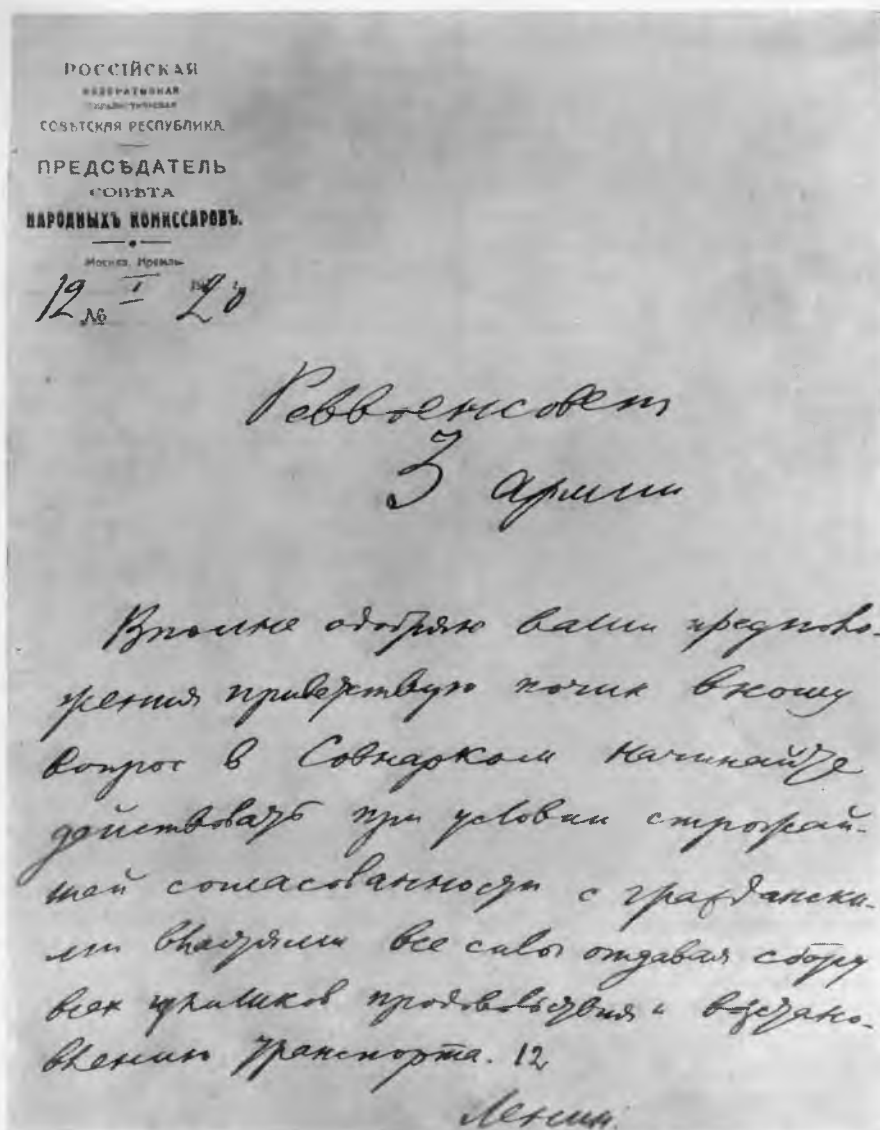 РОССІЙСКАЯ
ФЕДЕРАТИВНАЯ
СОЦІАЛИСТИЧЕСКАЯ
СОВѢТСКАЯ РЕСПУБЛИКА.
ПРЕДСѢДАТЕЛЬ
СОВѢТА
НАРОДНЫХЪ КОМИССАРОВЪ.
Москва, Кремль.
12 № I 1920
Реввоенсовет
3 армии
Вполне одобряю ваши предполо-
жения приветствую почин вношу
вопрос в Совнарком Начинайте
действовать при условии строжай-
шей согласованности с граждански-
ми властями все силы отдавая сбору
всех излишков продовольствия и восстано-
влению транспорта. 12
Ленин.